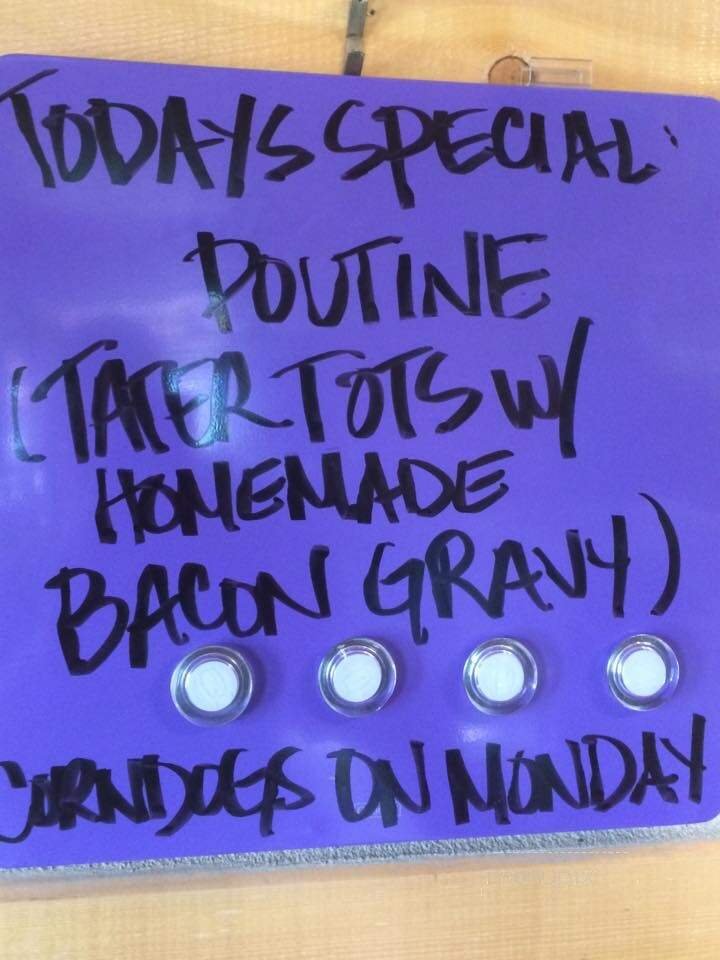 TODAYS SPECIAL:
POUTINE
(TATER TOTS W/
HOMEMADE
BACON GRAVY)
CORNDOGS ON MONDAY